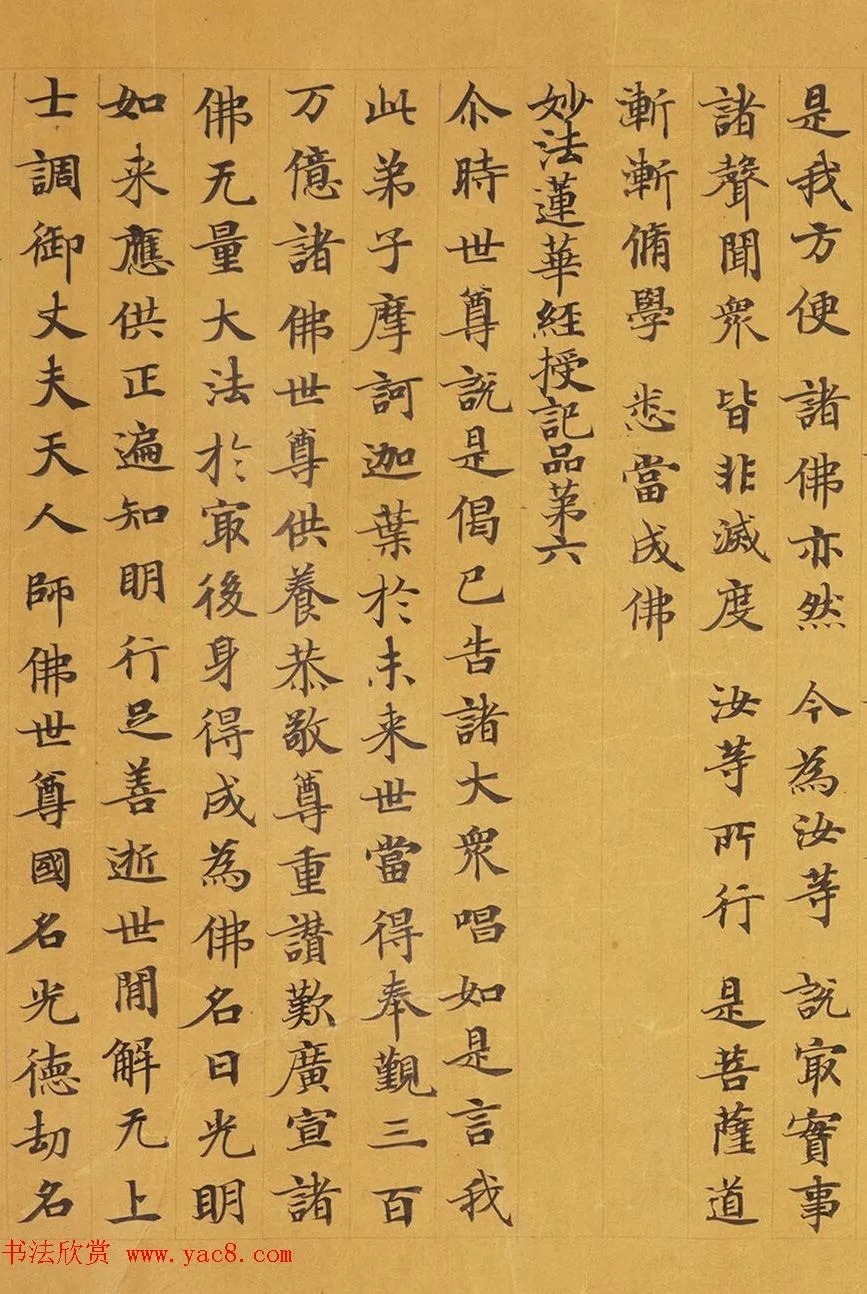 是我方便 諸佛亦然 今為汝等 說冣實事
諸聲聞衆 皆非滅度 汝等所行 是菩薩道
漸漸脩學 悉當成佛
妙法蓮華經授記品第六
尒時世尊說是偈已告諸大衆唱如是言我
此弟子摩訶迦葉於未来世當得奉覲三百
万億諸佛世尊供養恭敬尊重讚歎廣宣諸
佛无量大法於冣後身得成為佛名曰光明
如来應供正遍知明行足善逝世間解无上
士調御丈夫天人師佛世尊國名光德劫名
书法欣赏 www.yac8.com